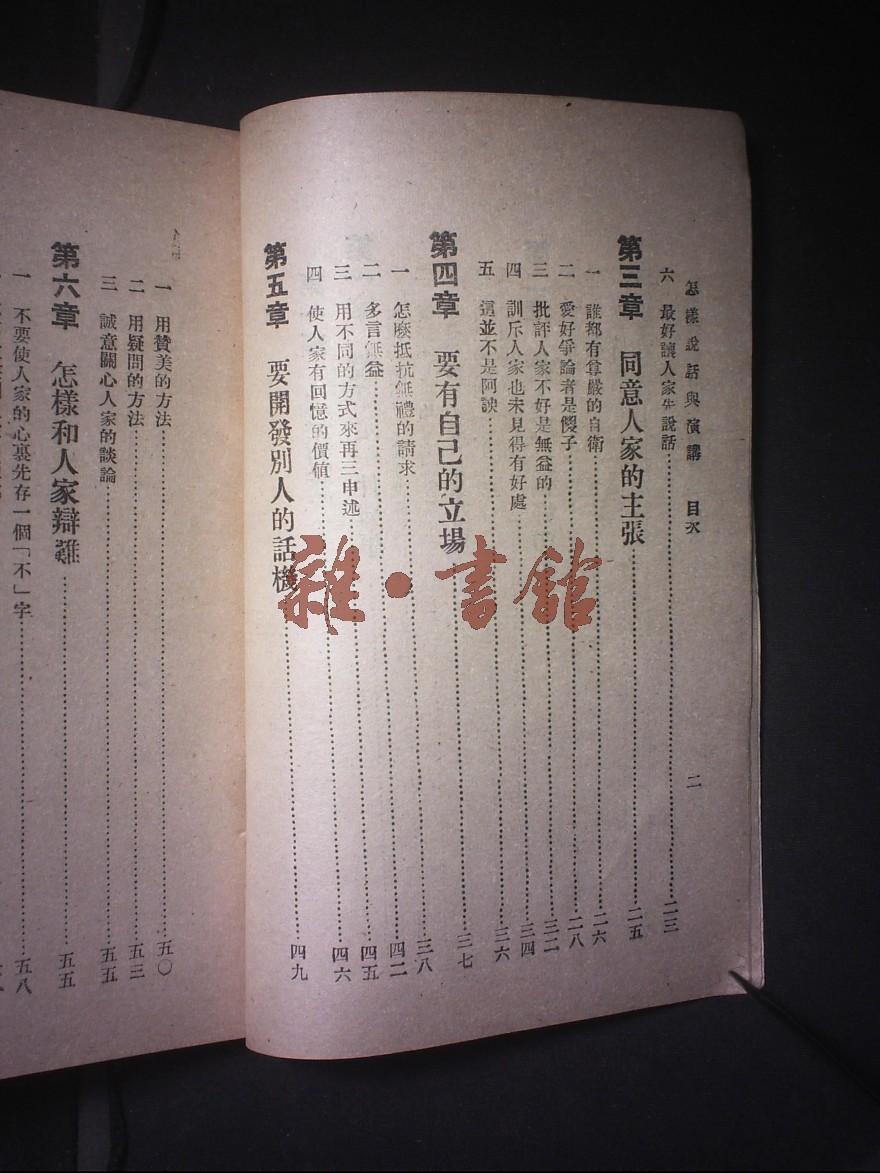 怎樣說話與演講 目次 二
六 最好讓人家先說話 二三
第三章 同意人家的主張 二五
一 誰都有尊嚴的自衛 二六
二 愛好爭論者是傻子 二八
三 批評人家不好是無益的 三二
四 訓斥人家也未見得有好處 三四
五 這並不是阿諛 三六
第四章 要有自己的立場 三七
一 怎麼抵抗無禮的請求 三八
二 多言無益 四二
三 用不同的方式來再三申述 四五
四 使人家有回憶的價值 四六
第五章 要開發別人的話機 四九
一 用贊美的方法 五〇
二 用疑問的方法 五三
三 誠意關心人家的談論 五五
第六章 怎樣和人家辯難 五五
一 不要使人家的心裏先存一個「不」字 五八
雜·書館